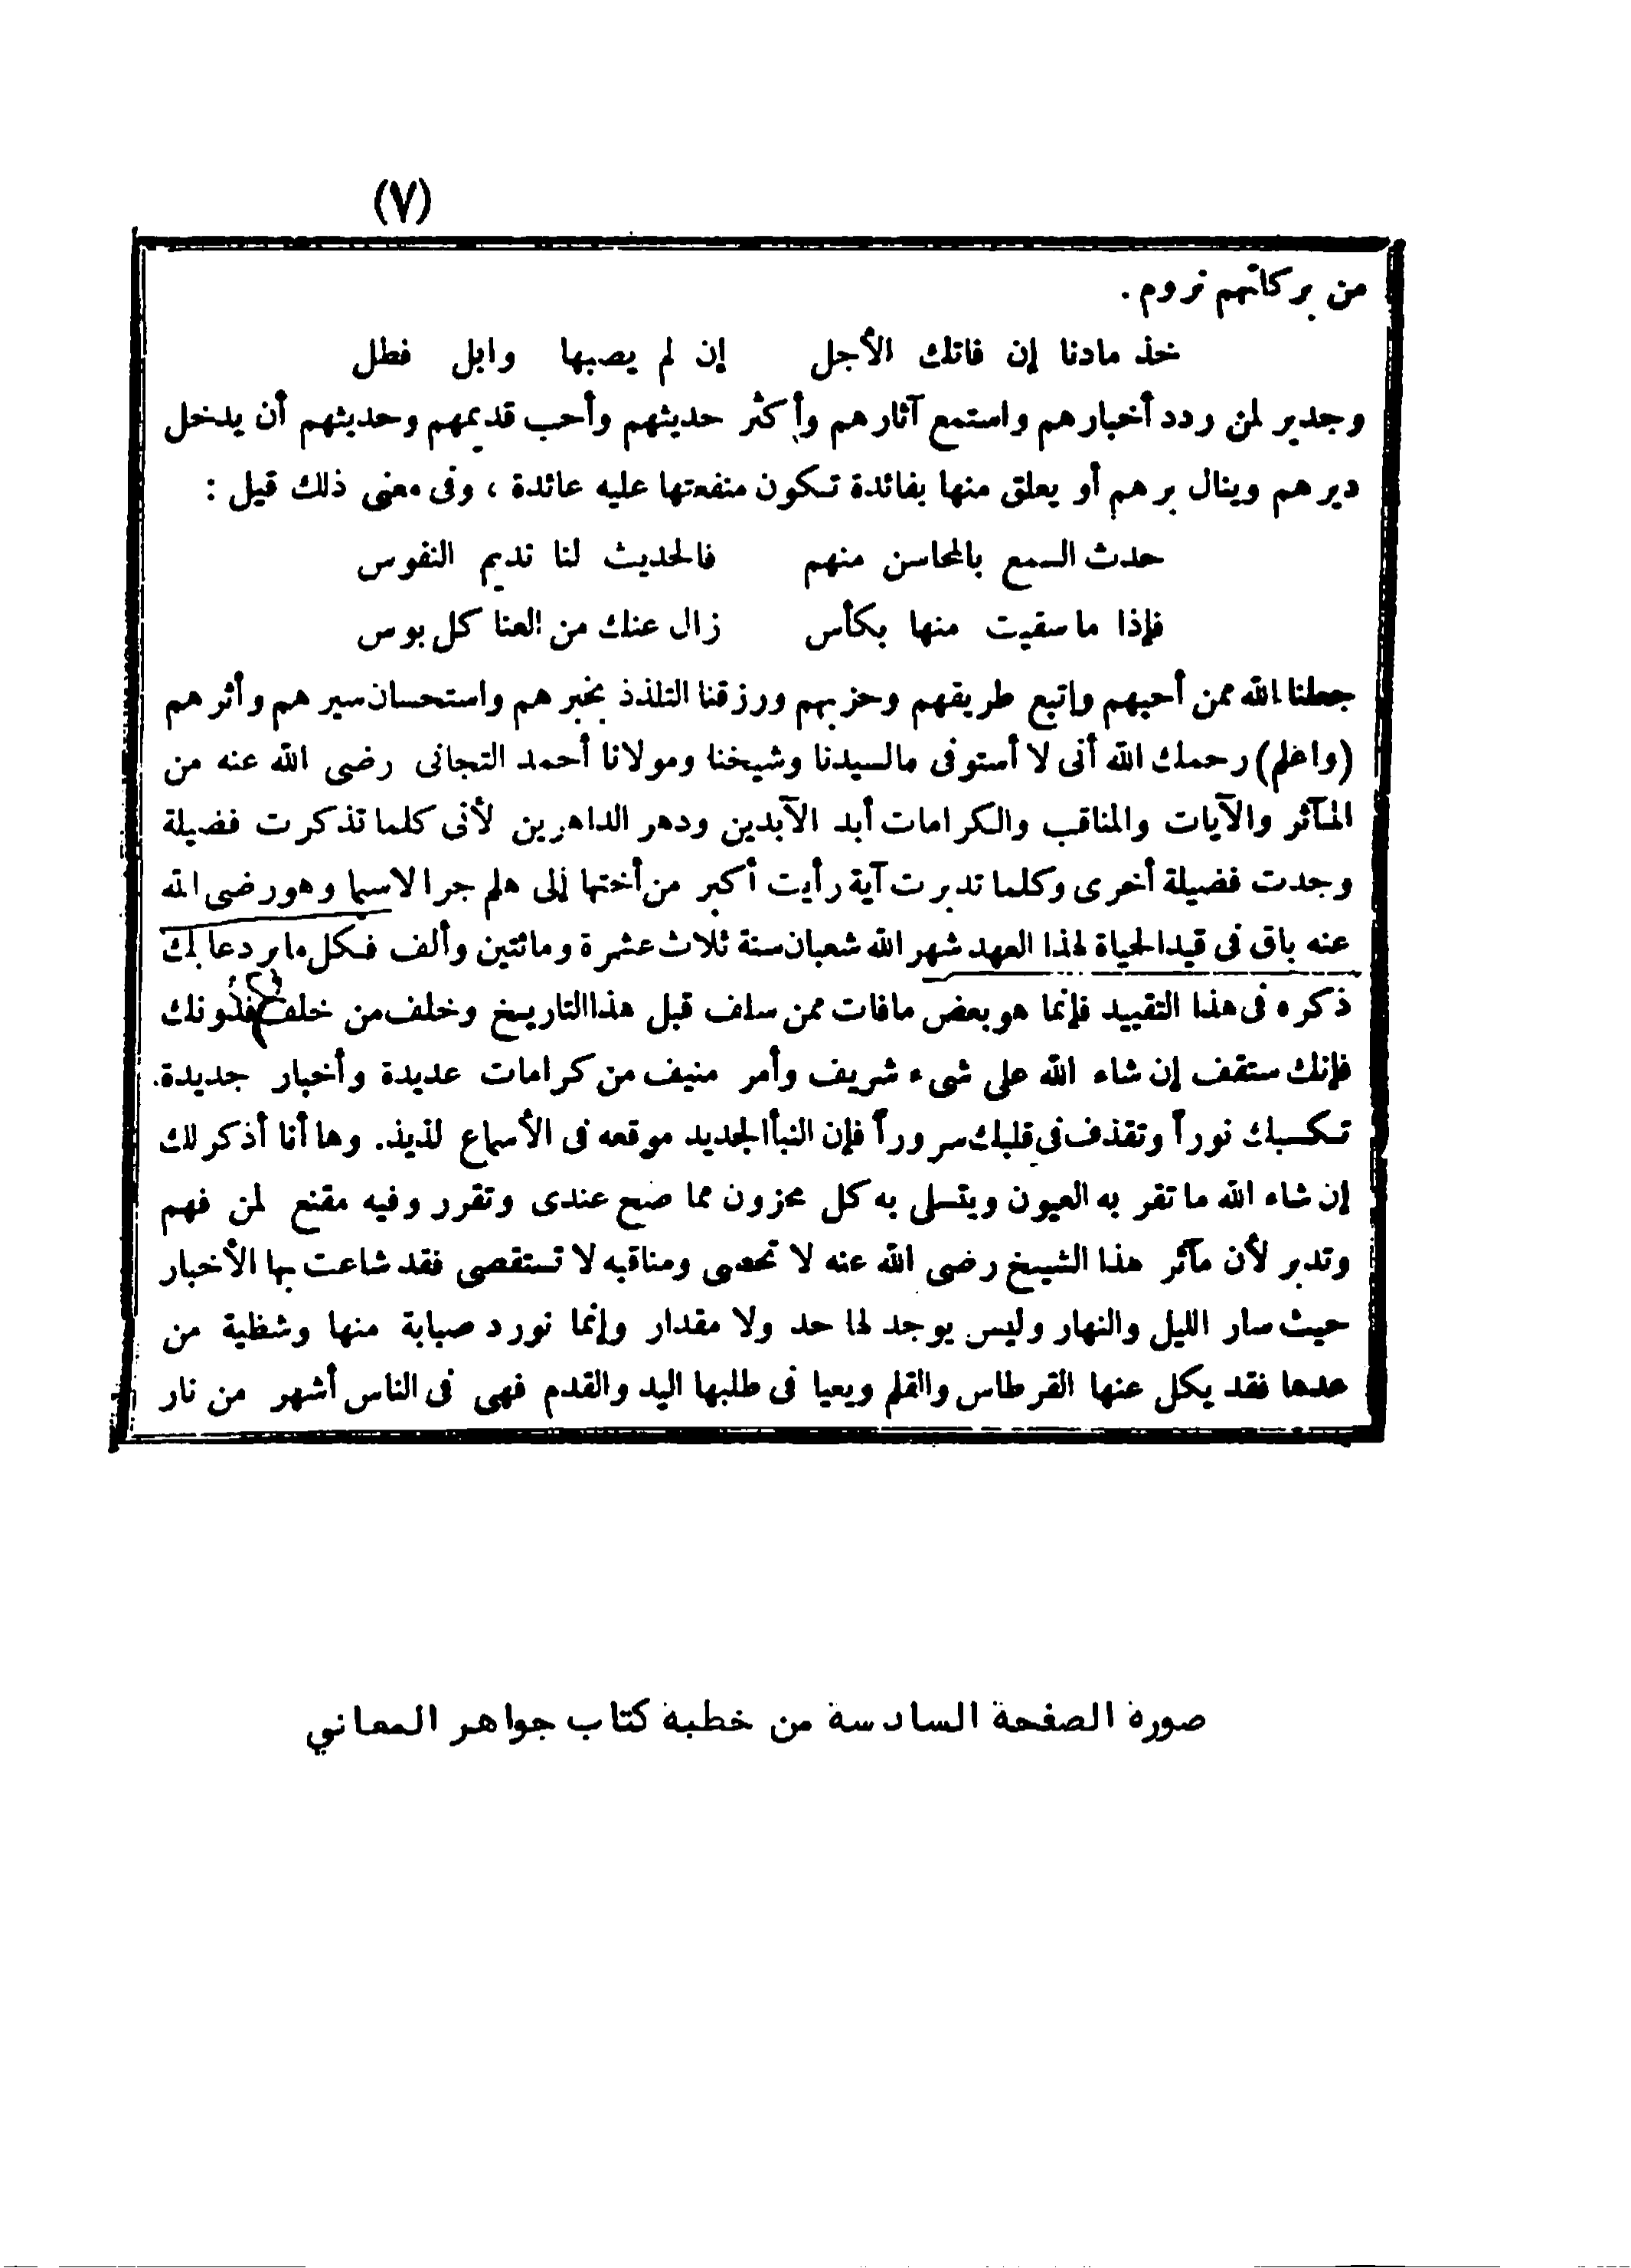 (٧)
من بركاتهم نروم .
خذ مادنا إن فاتك الأجل إن لم يصبها وابل فطل
وجدير لمن ردد أخبارهم واستمع آثارهم وأكثر حديثهم وأحب قديمهم وحديثهم أن يدخل
ديرهم وينال برهم أو يعلق منها بفائدة تكون منفعتها عليه عائدة ، وفى معنى ذلك قيل :
حدث السمع بالمحاسن منهم فالحديث لنا نديم النفوس
فإذا ما سقيت منها بكأس زال عنك من العنا كل بوس
جعلنا الله ممن أحبهم واتبع طريقهم وحزبهم ورزقنا التلذذ بخبرهم واستحسان سيرهم وأثرهم
(واعلم) رحمك الله أنى لا أستوفى مالسيدنا وشيخنا ومولانا أحمد التجانى رضى الله عنه من
المآثر والآيات والمناقب والكرامات أبد الآبدين ودهر الداهرين لأنى كلما تذكرت فضيلة
وجدت فضيلة أخرى وكلما تدبرت آية رأيت أكبر من أختها إلى هلم جرا لاسيما وهو رضى الله
عنه باق فى قيد الحياة لهذا العهد شهر الله شعبان سنة ثلاث عشرة ومائتين وألف فكل ما يرد عليك
ذكره فى هذا التقييد فإنما هو بعض مافات ممن سلف قبل هذا التاريخ وخلف من خلف فدونك
فإنك ستقف إن شاء الله على شىء شريف وأمر منيف من كرامات عديدة وأخبار جديدة.
تكسبك نوراً وتقذف فى قلبك سروراً فإن النبأ الجديد موقعه فى الأسماع لذيذ. وها أنا أذكر لك
إن شاء الله ما تقر به العيون ويتسلى به كل محزون مما صح عندى وتقرر وفيه مقنع لمن فهم
وتدبر لأن مآثر هذا الشيخ رضى الله عنه لا تحصى ومناقبه لا تستقصى فقد شاعت بها الأخبار
حيث سار الليل والنهار وليس يوجد لها حد ولا مقدار وإنما نورد صبابة منها وشظية من
عدها فقد يكل عنها القرطاس والقلم ويعيا فى طلبها اليد والقدم فهى فى الناس أشهر من نار
صورة الصفحة السادسة من خطبة كتاب جواهر المعاني